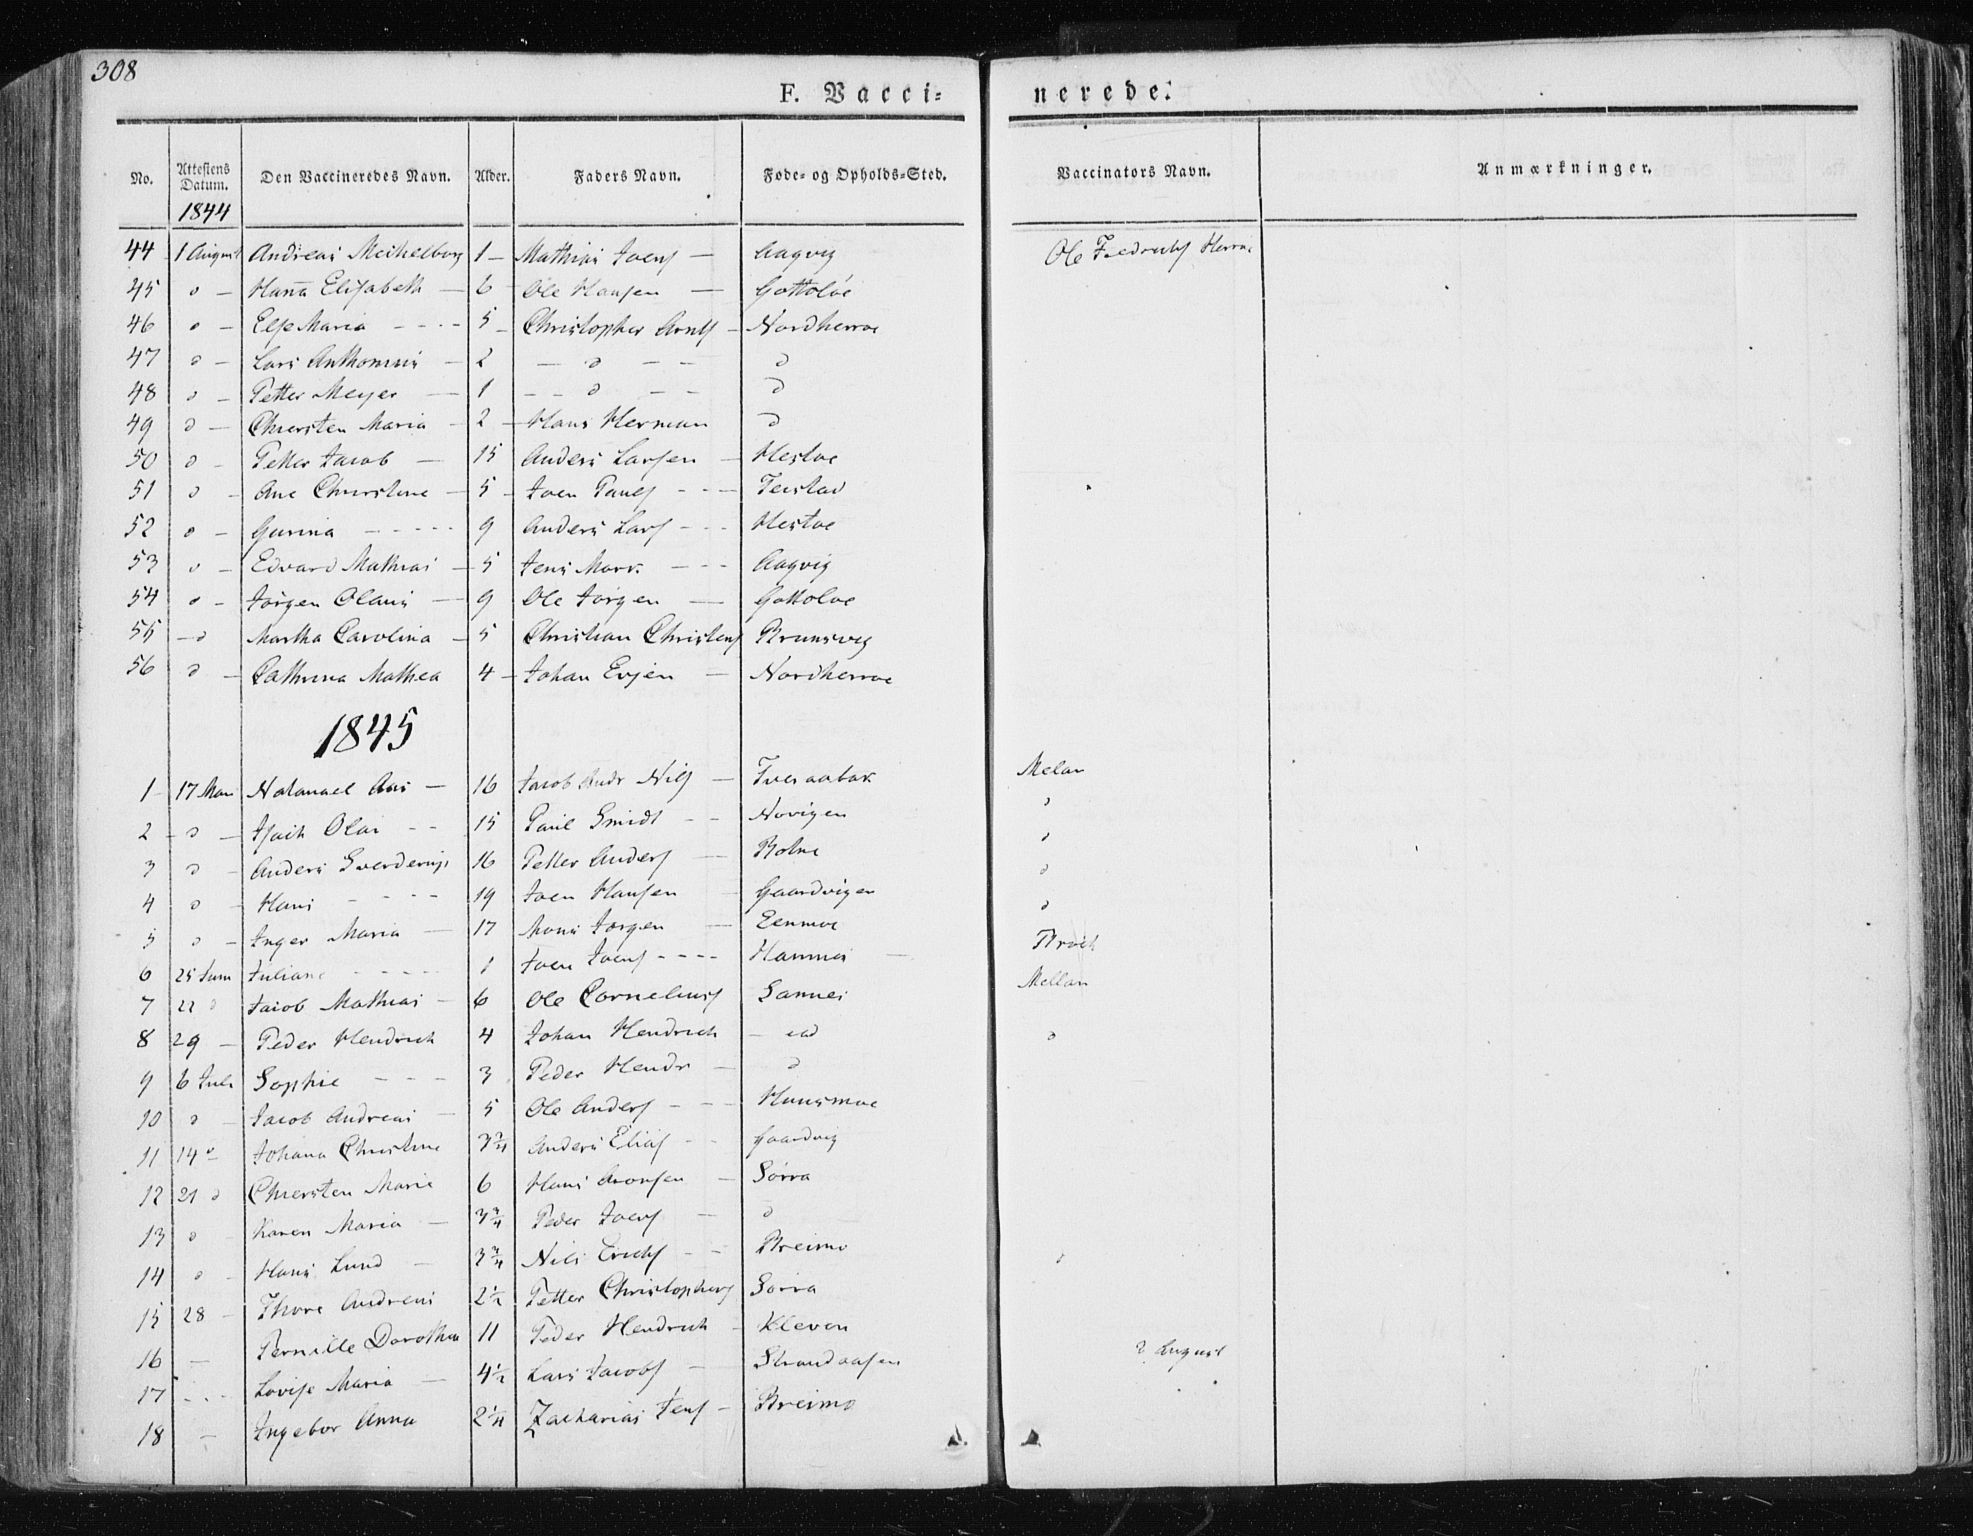 308
F. Vacci=
nerede.
No. Attestens Datum. Den Vaccineredes Navn. Alder. Faders Navn. Føde- og Opholds-Sted. Vaccinators Navn. Anmærkninger.
1844
44 1 August Andreas Mechelborg 1 Mathias Joens Aagvig Ole Fredrichs
45 d Hana Elisabeth 6 Ole Hansen Gottoløe
46 d Else Maria 5 Christopher Arnts Nordherroe
47 d Lars Anthonius 2 d d
48 d Petter Meyer 1 d d
49 d Chiersten Maria 2 Hans Herman d
50 d Petter Jacob 15 Anders Larsen Hestøe
51 d Ane Christine 5 Joen Pauls Teistad
52 d Gurina 9 Anders Lars Hestøe
53 d Edvard Mathias 5 Jens Mark Aagvig
54 d Jørgen Olaus 9 Ole Jørgen Gottoloe
55 d Martha Carolina 5 Christian Christens Brunsvig
56 d Cathrina Mathea 4 Johan Evjen Nordherroe
1845
1 17 Mai Natanael Aas 16 Jacob Andr Nils Tveraabak Melan
2 d Isach Olai 15 Paul Smidt Novigen d
3 d Anders Sverdrup 16 Petter Anders Botne d
4 d Hans 19 Joen Hansen Gaardvigen d
5 d Inger Maria 17 Mons Jørgen Eenmoe d
6 25 Juni Juliane 1 Joen Joens Hamnes Broch
7 22 d Jacob Mathias 6 Ole Cornelius Sannes Mellan
8 29 Peder Hendrich 4 Johan Hendrich d
9 6 Juli Sophie 3 Peder Hendr d
10 d Jacob Andreas 5 Ole Anders Huusmoe
11 14 d Johana Christine 3 3/4 Anders Elias Gaardvig
12 21 d Chiersten Marie 6 Hans Aronsen Sørra
13 d Karen Maria 3 3/4 Peder Joens d
14 d Hans Lund 3 3/4 Nils Erichs Breimo d
15 28 Thore Andreas 2 1/2 Petter Christophers Sørra
16 Pernille Dorothea 11 Peder Hendrich Kleven
17 Lovise Maria 4 1/2 Lars Jacobs Strandaasen 2 August
18 Ingebor Anna 2 1/4 Zacharias Jens Breimo